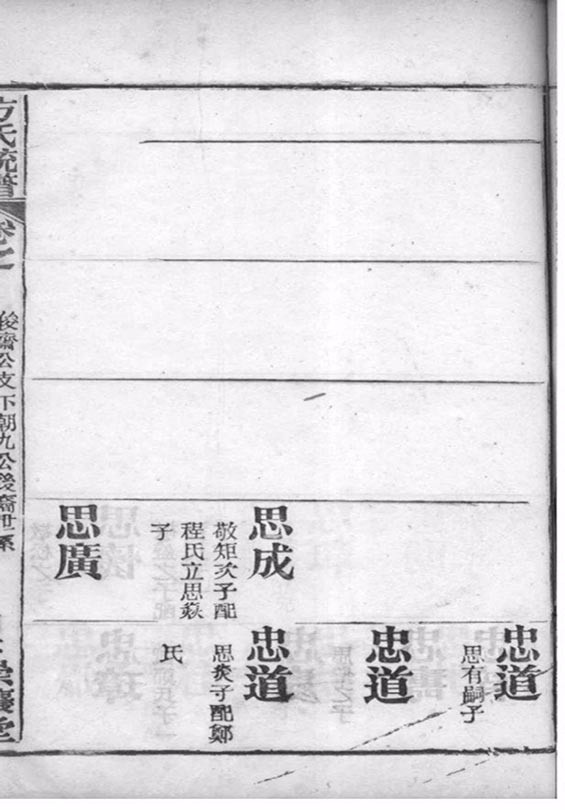 忠道
思有嗣子
忠道
思成
敬矩次子配
程氏立思焱
子
忠道
思炎子配鄭
氏
思廣
方氏統譜
卷之
俊齋公支下朝九公後裔世系